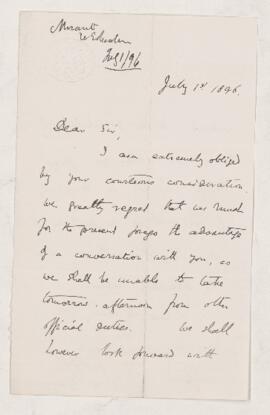 Morant
July 1/96
July 1st 1896.
Dear Sir,
I am extremely obliged
by your courteous consideration.
We greatly regret that we must
for the present forego the advantage
of a conversation with you, as
we shall be unable to take
tomorrow afternoon from other
official duties. We shall
however look forward with